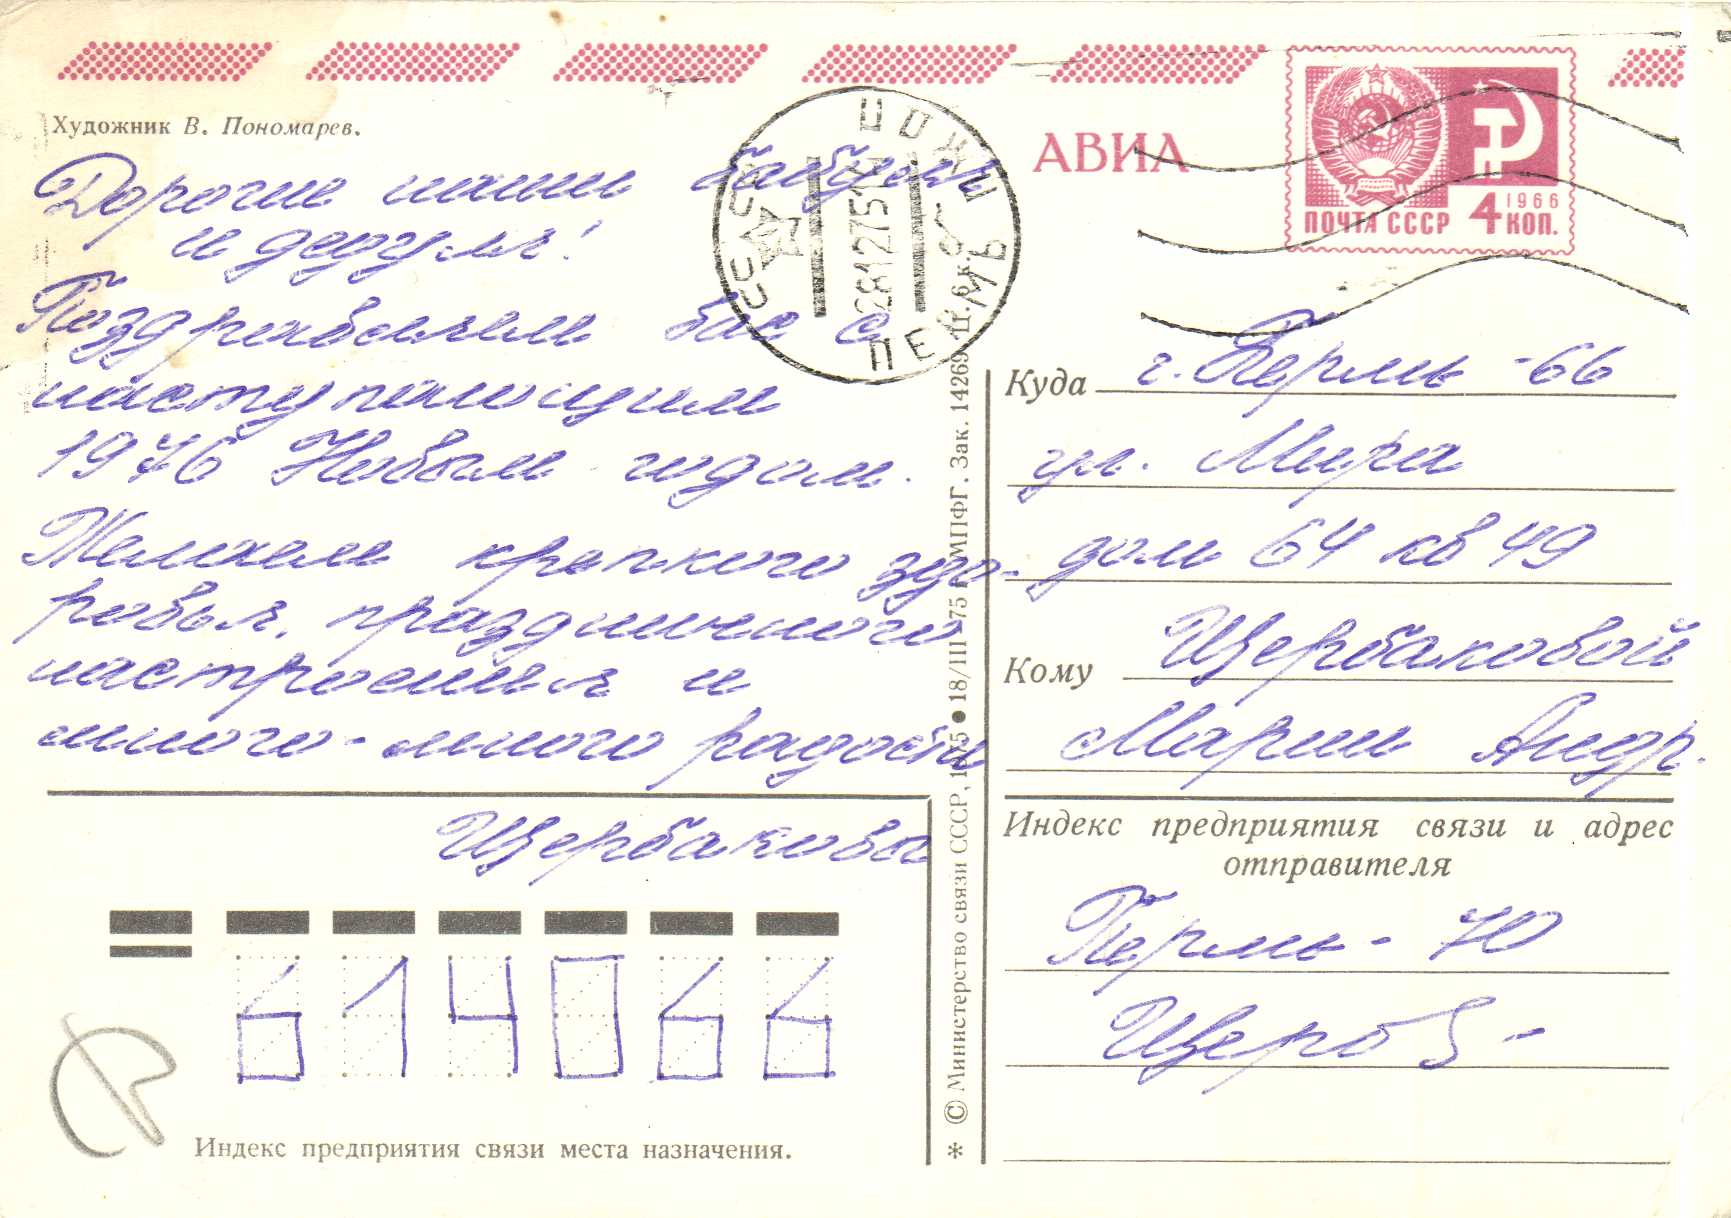 Художник В. Пономарев.
Дорогие наши бабуля
и дедуля!
Поздравляем вас с
наступающим
1976 Новым годом.
Желаем крепкого здо-
ровья, праздничного
настроения и
много-много радости
Щербаковы
614066
Индекс предприятия связи места назначения.
АВИА
1966
ПОЧТА СССР 4 КОП.
СССР
281275
ПЕРМЬ
ПОЧТ
* © Министерство связи СССР, 1975 ● 18/III 75 г. МПФГ. Зак. 14269 Ц. 6 к.
Куда г. Пермь-66
ул. Мира
дом 64 кв 49
Кому Щербаковой
Марии Андр.
Индекс предприятия связи и адрес
отправителя
Пермь-70